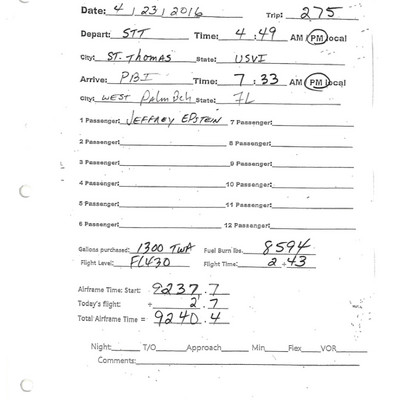 Date: 4/23/2016 Trip: 275
Depart: STT Time: 4:49 AM PM Local
City: ST. THOMAS State: USVI
Arrive: PBI Time: 7:33 AM PM Local
City: WEST Palm Bch State: FL
1 Passenger: JEFFREY EPSTEIN 7 Passenger:
2 Passenger: 8 Passenger:
3 Passenger: 9 Passenger:
4 Passenger: 10 Passenger:
5 Passenger: 11 Passenger:
6 Passenger: 12 Passenger:
Gallons purchased: 1300 TWA Fuel Burn lbs. 8594
Flight Level: FL430 Flight Time: 2+43
Airframe Time: Start: 9237.7
Today's flight: + 2.7
Total Airframe Time = 9240.4
Night: T/O Approach Min Flex VOR
Comments: